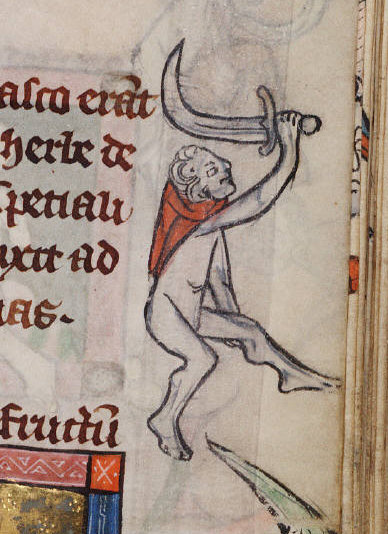 asco erāt
herbe de
spetiali
uxit ad
nas.
fructū